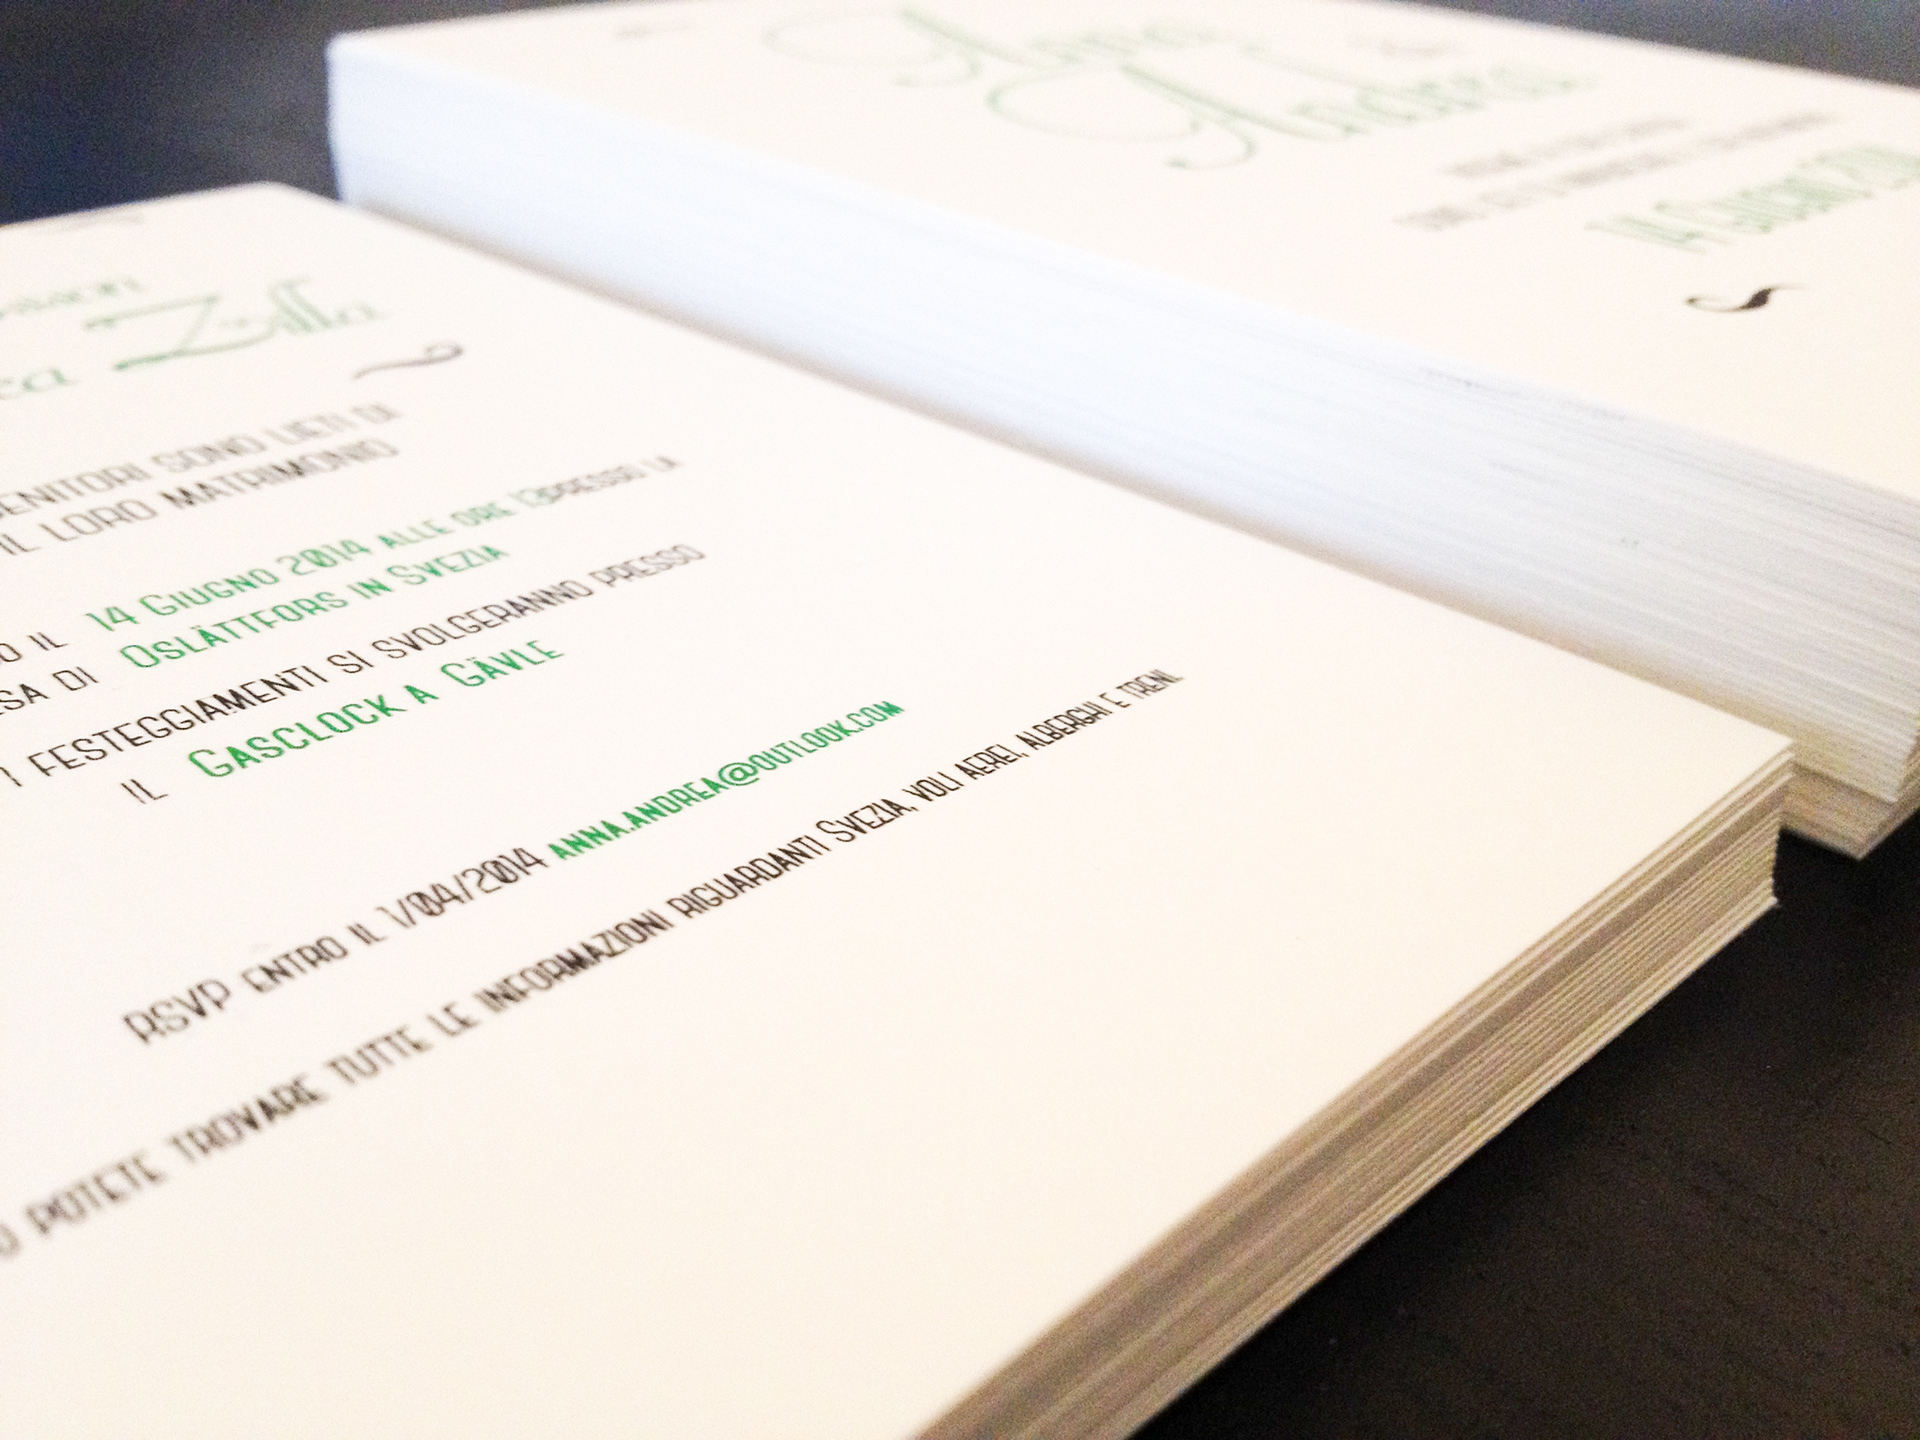 Zilla
GENITORI SONO LIETI DI
IL LORO MATRIMONIO
IL 14 GIUGNO 2014 ALLE ORE 13 PRESSO LA
DI OSLÄTTFORS IN SVEZIA
I FESTEGGIAMENTI SI SVOLGERANNO PRESSO
IL GASCLOCK A GÄVLE
RSVP ENTRO IL 1/04/2014 ANNA.ANDREA@OUTLOOK.COM
POTETE TROVARE TUTTE LE INFORMAZIONI RIGUARDANTI SVEZIA, VOLI AEREI, ALBERGHI E TRENI.
Anna
Andrea
14 GIUGNO 201